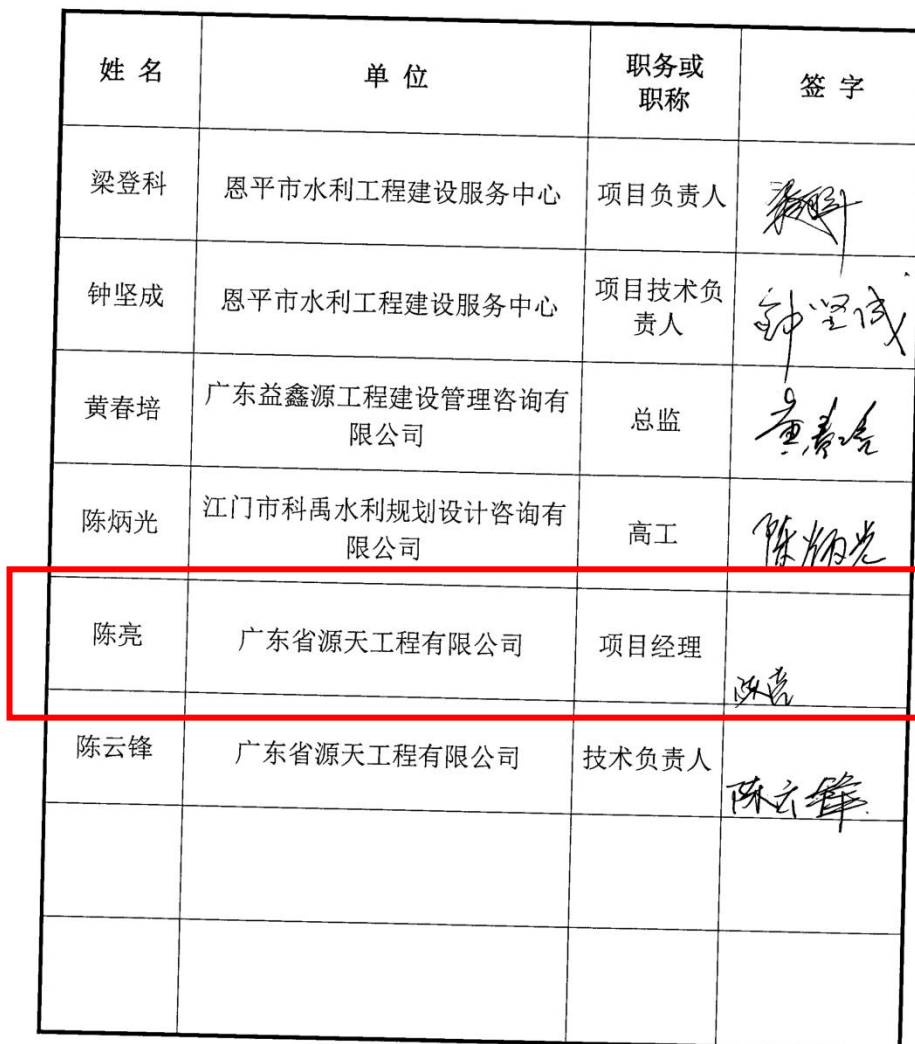 姓 名 单 位 职务或 签 字
职称
梁登科 恩平市水利工程建设服务中心 项目负责人 梁登科
钟坚成 恩平市水利工程建设服务中心 项目技术负 钟坚成
责人
黄春培 广东益鑫源工程建设管理咨询有 总监 黄春培
限公司
陈炳光 江门市科禹水利规划设计咨询有 高工 陈炳光
限公司
陈亮 广东省源天工程有限公司 项目经理 陈亮
陈云锋 广东省源天工程有限公司 技术负责人 陈云锋